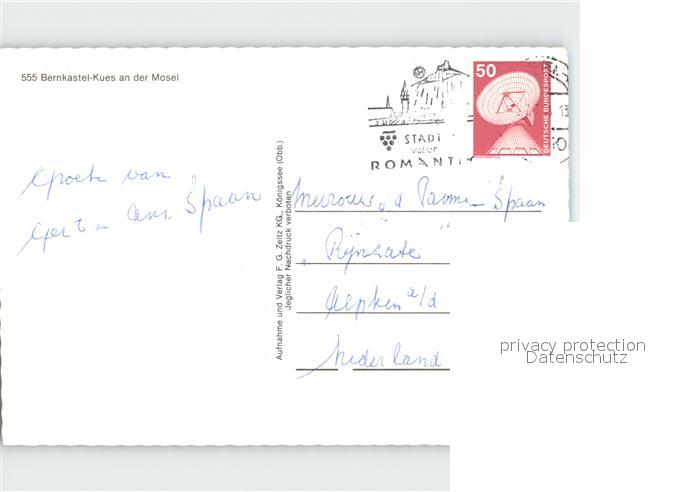 555 Bernkastel-Kues an der Mosel
STADT
voller
ROMANTI
50
DEUTSCHE BUNDESPOST
13
Groeten van
en Ans Spaan
Aufnahme und Verlag F. G. Zeitz KG., Königssee (Obb.)
Jeglicher Nachdruck verboten
Mevrouw Spaan
"Rijnzate"
a/d
Nederland
privacy protection
Datenschutz